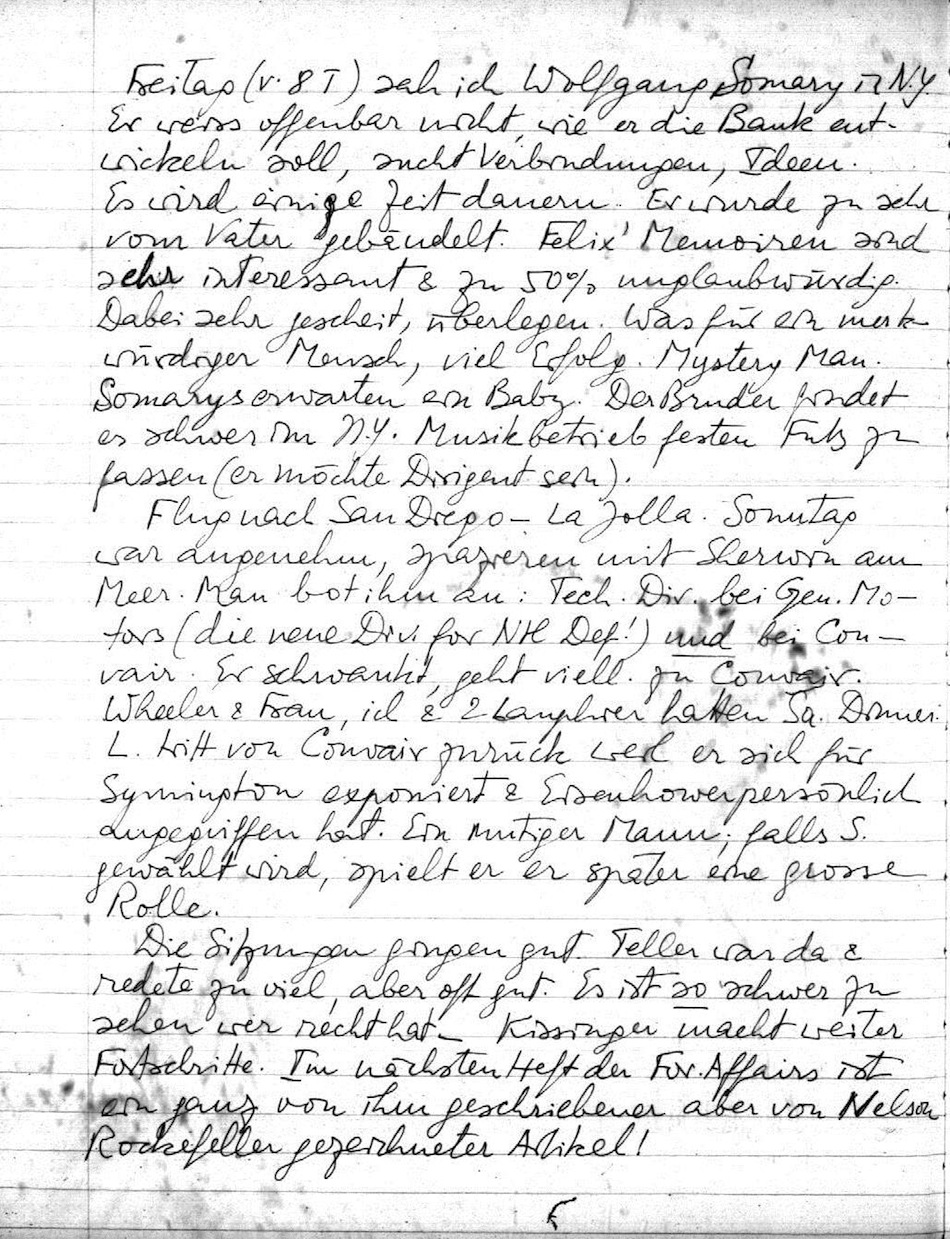 Freitag (v. 8 T) sah ich Wolfgang Somary in N.Y.
Er weiss offenbar nicht, wie er die Bank ent-
wickeln soll, sucht Verbindungen, Ideen.
Es wird einige Zeit dauern. Er wurde zu sehr
vom Vater gebändelt. Felix' Memoiren sind
sehr interessant & zu 50% unglaubwürdig.
Dabei sehr gescheit, überlegen. Was für ein merk-
würdiger Mensch, viel Erfolg. Mystery Man.
Somarys erwarten ein Baby. Der Bruder findet
es schwer im N.Y. Musikbetrieb festen Fuß zu
fassen (er möchte Dirigent sein).
Flug nach San Diego – La Jolla. Sonntag
war angenehm, spazieren mit Sherwin am
Meer. Man bot ihm an: Tech. Div. bei Gen. Mo-
tors (die neue Div. for Ntl Def!) und bei Con-
vair. Er schwankt, geht viell. zu Convair.
Wheeler & Frau, ich & 2 Lanphier hatten Sa. Dinner.
L. tritt von Convair zurück weil er sich für
Symington exponiert & Eisenhower persönlich
angegriffen hat. Ein mutiger Mann; falls S.
gewählt wird, spielt er er später eine grosse
Rolle.
Die Sitzungen gingen gut. Teller war da &
redete zu viel, aber oft gut. Es ist so schwer zu
sehen wer recht hat – Kissinger macht weiter
Fortschritte. Im nächsten Heft der For. Affairs ist
ein ganz von ihm geschriebener aber von Nelson
Rockefeller gezeichneter Artikel!